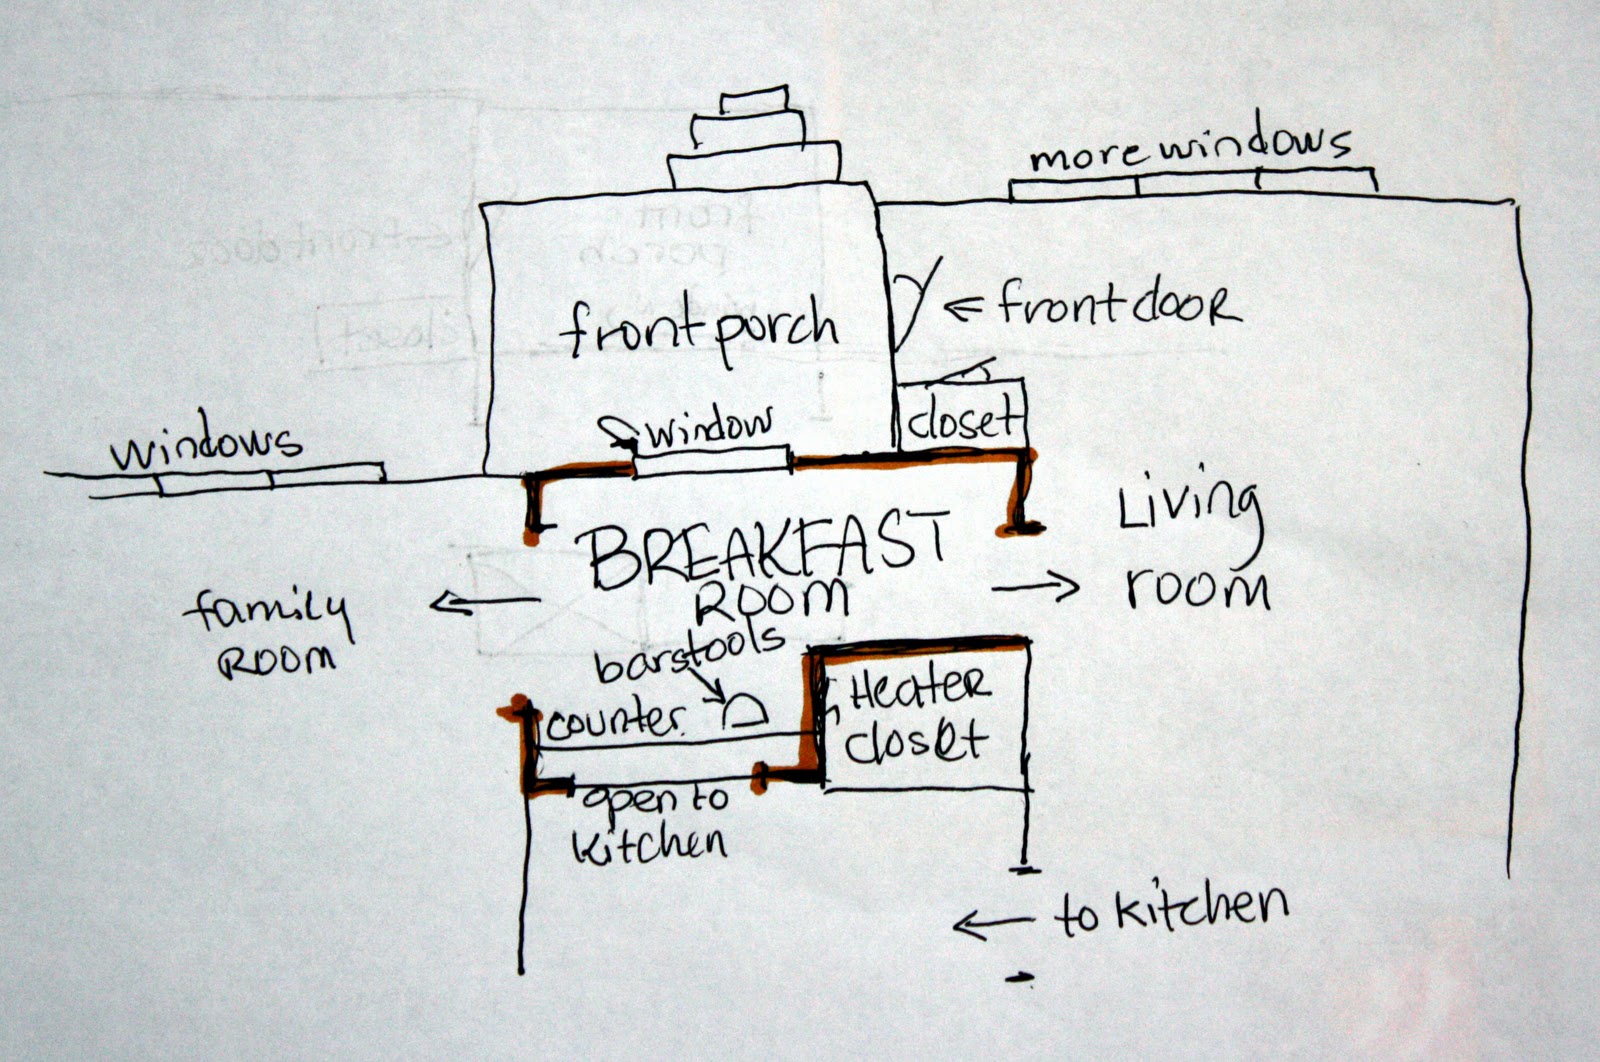 more windows
front porch
← front door
window
closet
windows
BREAKFAST
ROOM
Living
room
family
ROOM
barstools
counter
Heater
closet
open to
kitchen
← to kitchen